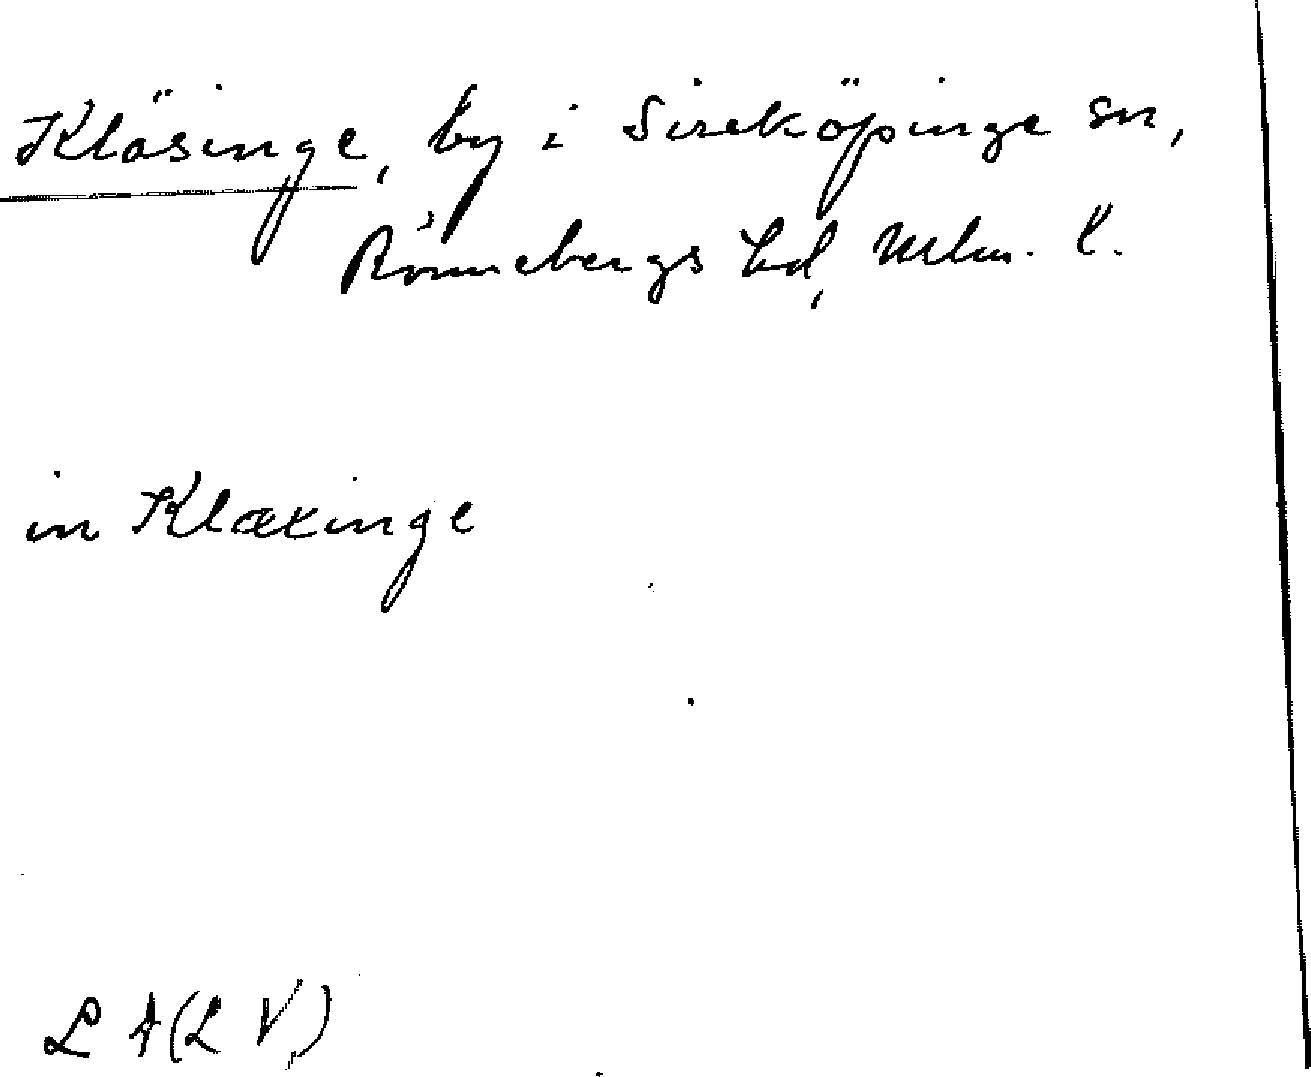 Kläsinge, by i Sireköpinge sn,
Rönnebergs hd, Mlm. l.
in Klæxinge
L A (L V)